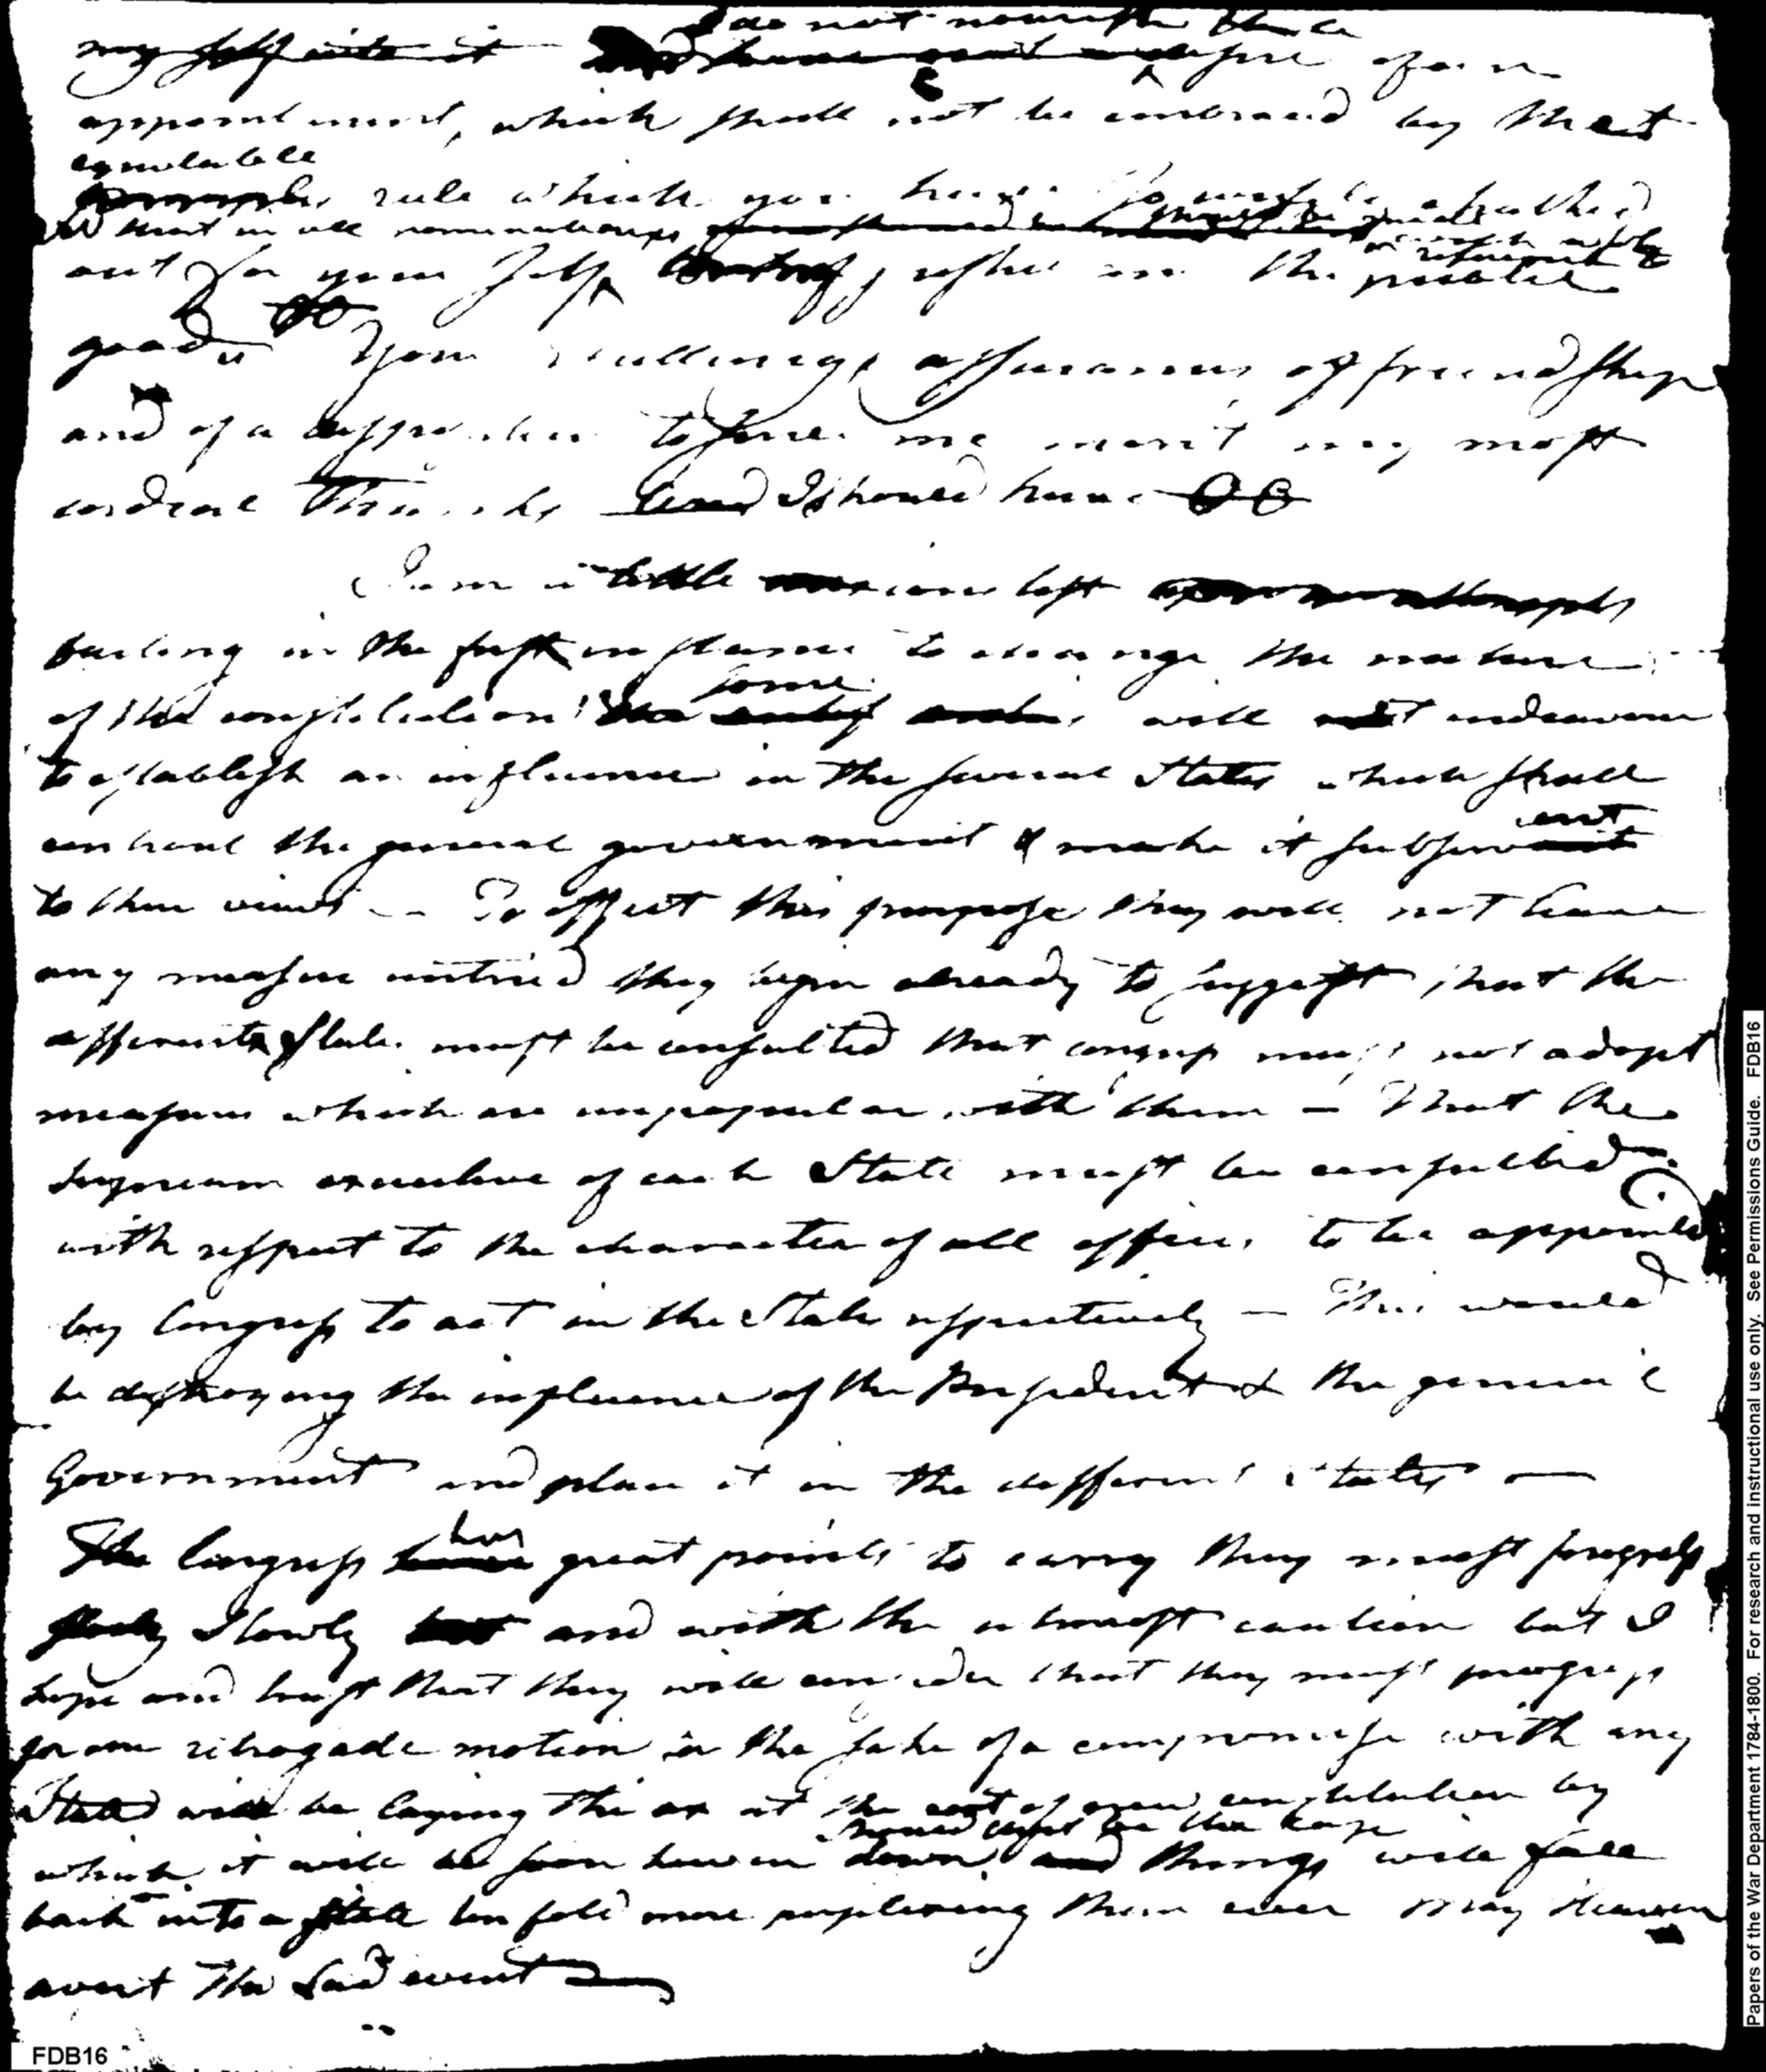 I do not nourish the
my self into it have not a desire of an
appointment, which shall not be embraced by that
equitable
rule which you have
that in all nominations
out for your self, reflect on the public
good Your obligings assurances of friendship
and of a disposition to serve me merit my most
cordial Thanks and I should have
I am a little anxious lest
failing in the first instance to change the nature
some
of the constitution will not endeavour
to establish an influence in the several States which shall
ent
controul the general government & make it subservant
to their views — To effect this purpose they will not leave
any measure untried they begin already to suggest that the
different State must be consulted that congress must not adopt
measures which are unpopular with them — That the
supream executive of each State must be consulted
with respect to the character of all officers to be appointed
by Congress to act in the State respectively — This would
be destroying the influence of the President & the general
Government and place it in the different States —
has
The Congress have great points to carry they must progress
slowly but and with the utmost caution but I
hope and trust that they will consider that they must progress
for one retrogade motion or the sake of a compromise with any
State will be laying the ax at the root of our constitution by
Should such be the case
which it will be soon hewen down and things will fall
back into a state ten fold more perplexing then ever may Heaven
avert the sad event
FDB16
Papers of the War Department 1784-1800. For research and instructional use only. See Permissions Guide. FDB16